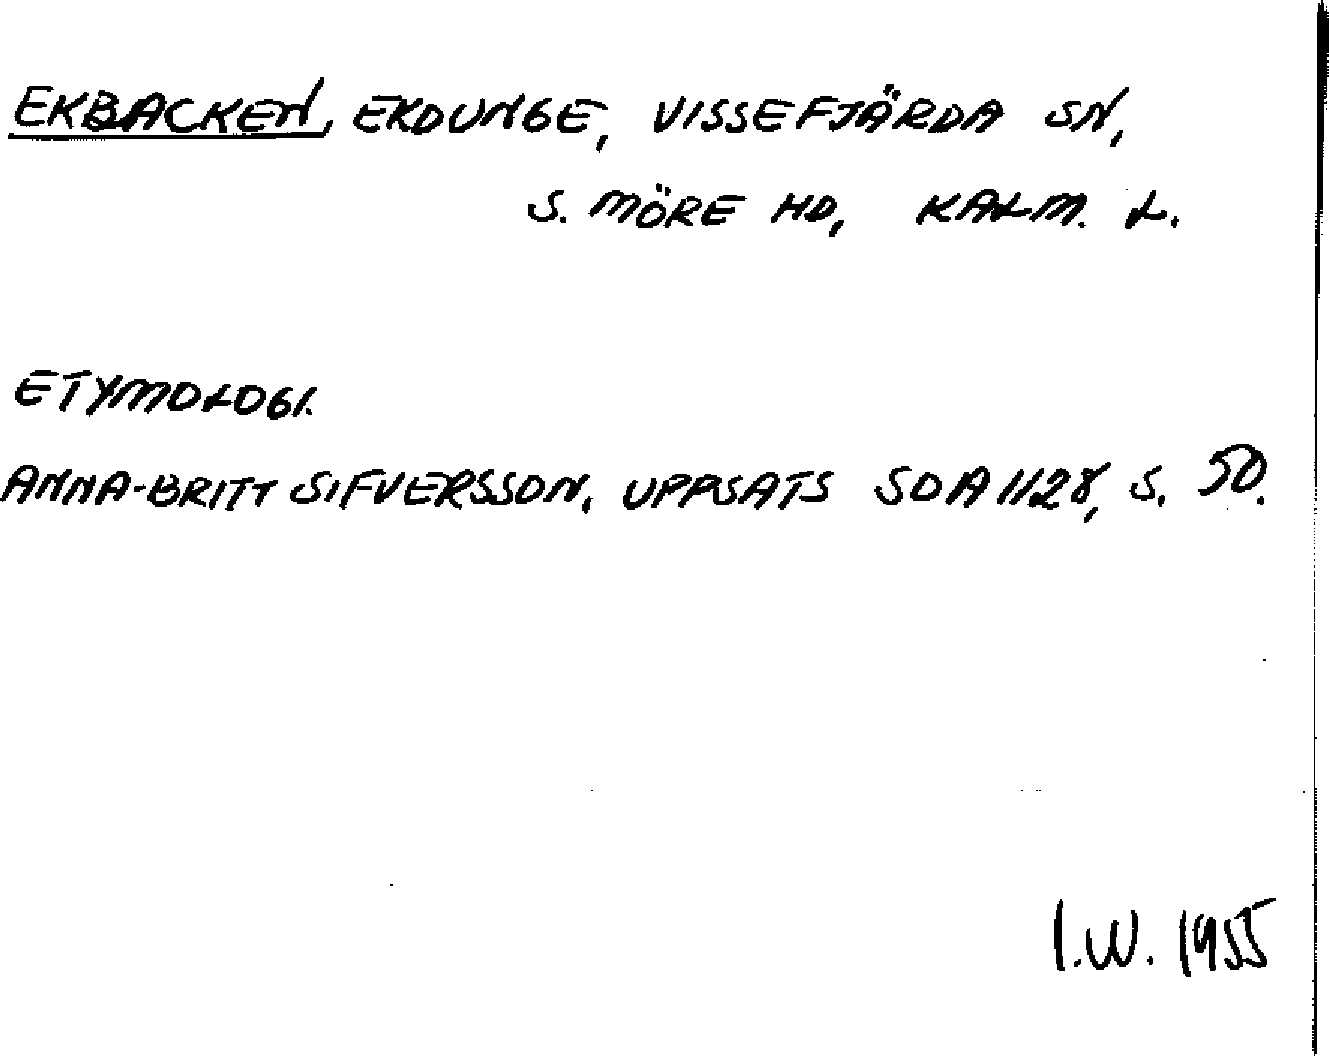 EKBACKEN, EKDUNGE, VISSEFJÄRDA SN,
S. MÖRE HD, KALM. L.
ETYMOLOGI.
ANNA-BRITT SIFVERSSON, UPPSATS SOA 1128, S. 50.
I.W. 1955